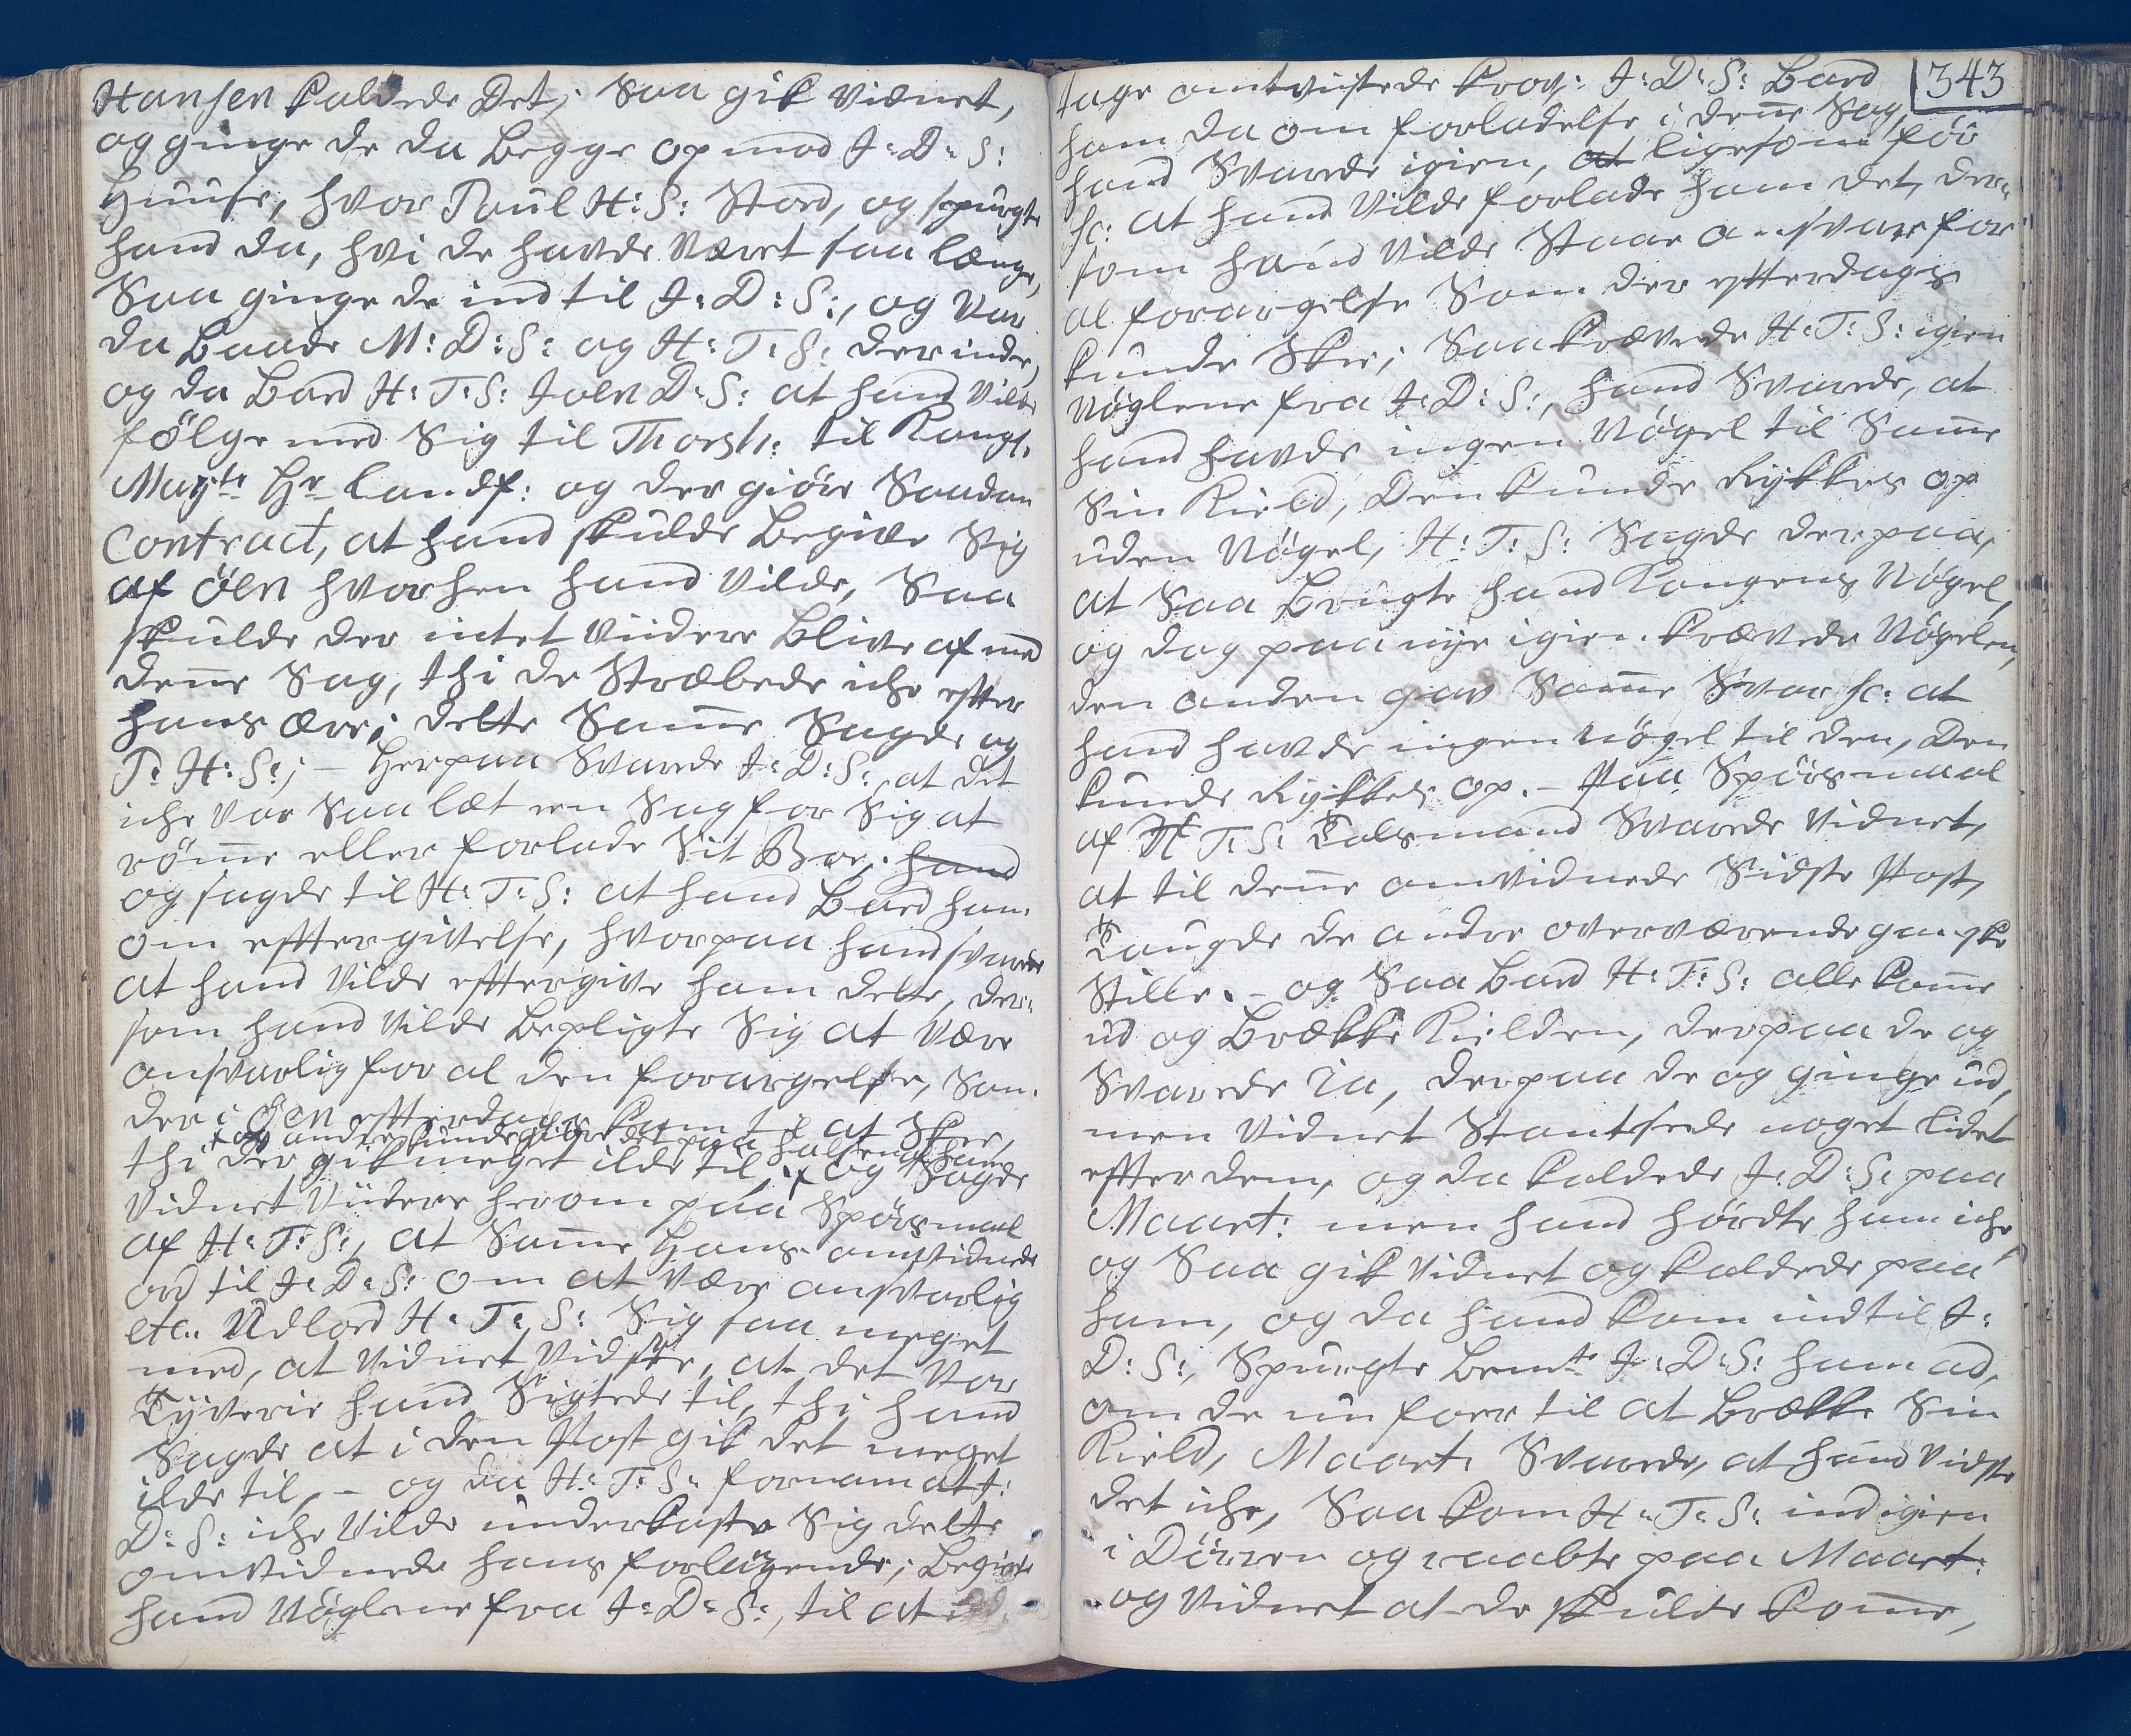 Hansen kaldede Det; Saa gik Vidnet,
og ginge de da Begge op mod J: D: S:
Huuse, hvor Poul H: S: Stod, og spurgte
hand da, hvi de havde været saa længe,
Saa ginge de ind til J: D: S:, og Var
da Baade M: D: S: og H: J: S: derinde,
og da Bad H: J: S: Joen D: S: at hand Vilde
fölge med Sig til Thorsh: til Kongl.
Mayts Hr Landf: og der giöre Saadan
Contract, at hand skulde Begive Sig
af öen hvorhen hand Vilde, Saa
skulde der intet Viidere Blive af med
denne Sag, thi de Stræbede iche efter
hans ære; dette Samme Sagde og
P: H: S:; – Herpaa Svarede J: D: S:, at det
iche Var Saa læt en Sag for Sig at
römme eller forlade Sit Boe; hand
og sagde til H: J: S: at hand Bad ham
om efftergivelse, hvorpaa hand svarede
at hand Vilde efftergive ham dette, der-
som hand Vilde Bepligte Sig at være
ansvarlig for al den forargelse, Som
der i Öen effterdags kom til at Skee,
+ og andre kunde giöre det paa halsen af ham
thi der gik meget ilde til, + og Sagde
Vidnet Viidere herom paa Spörsmaal
af H: J: S:, at Samme Hans omvidnede
ord til J: D: S: om at være ansvarlig
etc. Udlod H: J: S: Sig saa meget
med, at Vidnet Vidste, at det Var
Tyverie hand Sigtede til, thi hand
Sagde at i den Post gik det meget
ilde til, – og da H: J: S: fornam at J:
D: S: iche Vilde underkaste Sig dette
omvidnede hans forlangende; Begierte
hand Nöglene fra J: D: S:, til at
343
tage omtvistede krov: J: D: S: Bad
ham da om forladelse i denne Sag,
hand Svarede igien, at ligesom för
sc: at hand Vilde forlade ham det, der-
som hand Vilde Staae ansvar for
al forargelse Som der effterdags
kunde Skee; Saa krævede H: J: S: igien
Nöglene fra J: D: S:, hand Svarede, at
hand havde ingen Nögel til Samme
Sin Kield, Den kunde Rykkes op
uden Nögel, H: J: S: Sagde derpaa,
at Saa Brugte hand Kongens Nögel,
og dog paa nye igien krævede Nögelen,
den anden gav Samme Svar sc: at
hand havde ingen nögel til den, Den
kunde Rykkes op. – Paa Spörsmaal
af H J: S: Talsmand Svarede Vidnet,
at til denne omvidnede Sidste Post,
Taugde de andre overværende ganske
Stille. – og Saa Bad H: J: S: alle komme
ud og Brække Kielden, derpaa de og
Svarede Ja, derpaa de og ginge ud,
men Vidnet Stantsede noget lidet
effter dem, og da kaldede J: D: S: paa
Maart: men hand hördte ham iche,
og Saa gik Vidnet og kaldede paa
ham, og da hand kom ind til J:
D: S:, Spurgte Bemte J: D: S: ham ad,
om de nu foer til at Brække Sin
Kield, Maart: Svarede, at hand Vidste
det iche, Saa kom H: J: S: ind igien
i Dörren og raabte paa Maart:
og Vidnet at de skulde komme,